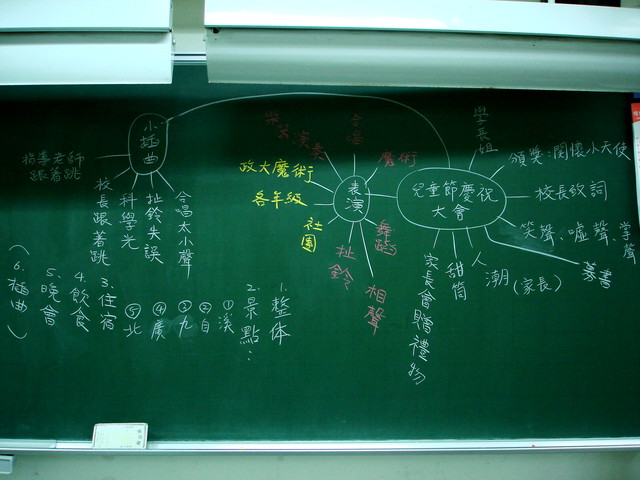 兒童節慶祝
大會
學長姐
頒獎:關懷小天使
校長致詞
笑聲、噓聲、掌聲
摹書
人潮
(家長)
甜筒
家長會贈禮物
表演
合唱
魔術
舞蹈
相聲
扯鈴
社團
各年級
政大魔術
小插曲
指導老師
跟著跳
合唱太小聲
扯鈴失誤
科學光
校長跟著跳
1.整体
2.景點:
①溪
②自
③九
④廣
⑤北
3.住宿
4.飲食
5.晚會
(6.插曲)